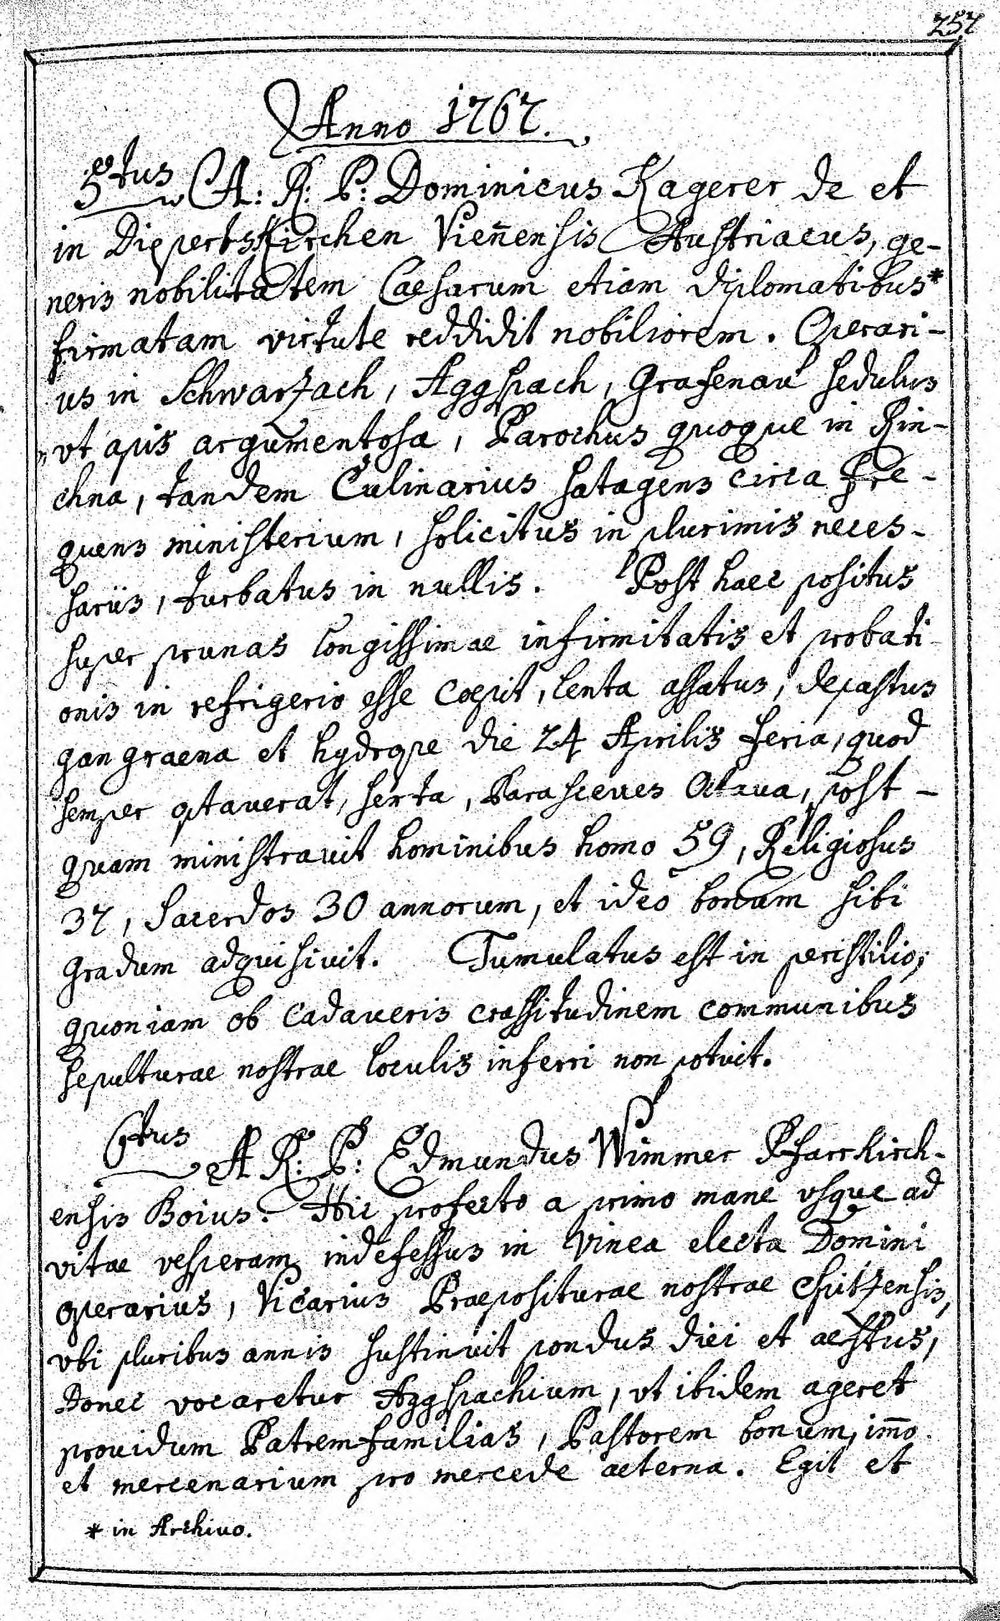 257
Anno 1767.
5tus A: R: P: Dominicus Kagerer de et
in Diepertskirchen Vien̄ensis Austriacus, ge-
neris nobilitatem Caesarum etiam diplomatibus*
firmatam virtute reddidit nobiliorem. Operari-
us in Schwarzach, Aggspach, Grafenau sedulus
vt apis argumentosa, Parochus quoque in Rin-
chna, tandem Culinarius satagens circa fre-
quens ministerium, solicitus in plurimis neces-
sariis, turbatus in nullis. Post haec positus
super prunas longissimae infirmitatis et probati-
onis in refrigerio esse coepit, lenta assatus, depastus
gangraena et hydrope die 24 Aprilis feria, quod
semper optauerat, sexta, Parasceues Octaua, post-
quam ministrauit hominibus homo 59, Religiosus
37, Sacerdos 30 annorum, et ideo bonum sibi
gradum adquisiuit. Tumulatus est in peristilio,
quoniam ob cadaueris crassitudinem communibus
sepulturae nostrae loculis inferri non potuit.
6tus A R: P: Edmundus Wimmer Pfarrkirch-
ensis Boius. Hic profecto a primo mane vsque ad
vitae vesperam indefessus in vinea electa Domini
operarius, Vicarius Praepositurae nostrae Spitzensis,
vbi pluribus annis sustinuit pondus diei et aestus,
Donec vocaretur Aggspachium, vt ibidem ageret
prouidum Patremfamilias, Pastorem bonum, im̄o
et mercenarium pro mercede aeterna. Egit et
* in Archiuo.